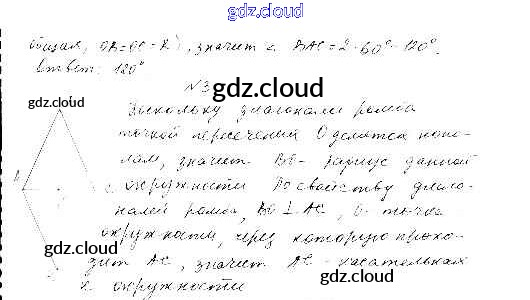 gdz.cloud
общая, OB=OC=R), значит ∠BAC=2·60°=120°.
Ответ: 120°
N3
gdz.cloud
gdz.cloud
Поскольку диагонали ромба
точкой пересечения O делятся попо-
лам, значит BO - радиус данной
окружности По свойству диаго-
gdz.cloud
налей ромба, BO⊥AC, O - точка
окружности, через которую прохо-
gdz.cloud
дит AC, значит AC - касательная
gdz.cloud
к окружности